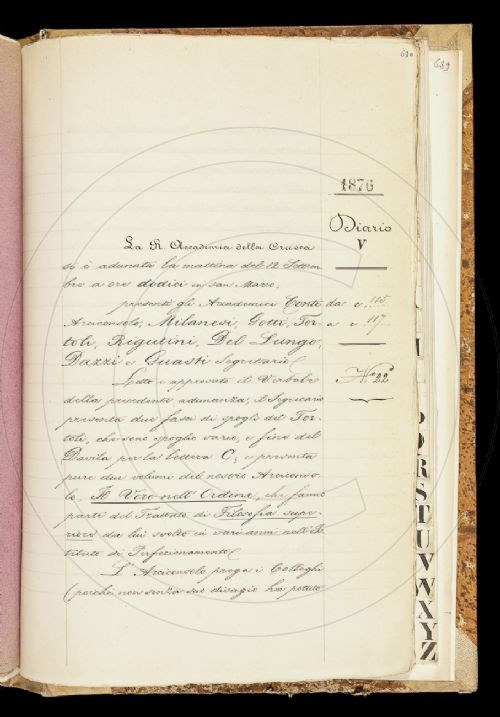 630
639
1876
Diario
V
da c. 115
a c. 117
N.° 22
La R. Accademia della Crusca
si è adunata la mattina del 12 Settem
bre a ore dodici in San Marco,
presenti gli Accademici Conte,
Arciconsolo, Milanesi, Gotti, Tor
toli, Rigutini, Del Lungo,
Dazzi e Guasti Segretario.
Letto e approvato il Verbale
della precedente adunanza, il Segretario
presenta due fasci di spogli del Tor
toli, che sono spoglio vario, e fino del
Davila per la lettera C; e presenta
pure due volumi del nostro Arciconso
lo, Il Vero nell'Ordine, che fanno
parte del Trattato di Filosofia supe
riore da lui svolto in vari anni nell'Is
tituto di Perfezionamento.
L'Arciconsolo prega i Colleghi
(perchè non senza suo disagio ha potuto
P
Q
R
S
T
U
V
W
X
Y
Z